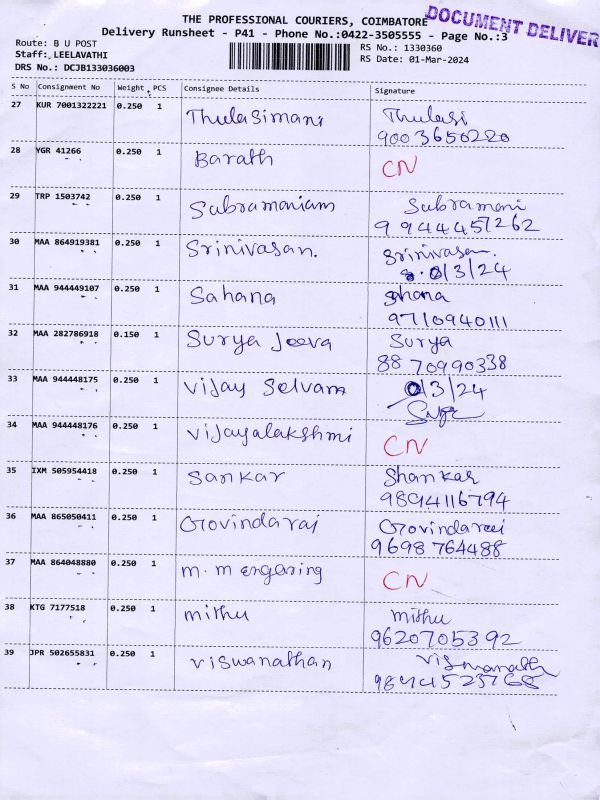 THE PROFESSIONAL COURIERS, COIMBATORE
DOCUMENT DELIVER
Delivery Runsheet - P41 - Phone No.:0422-3505555 - Page No.:3
Route: B U POST
RS No.: 1330360
Staff: LEELAVATHI
RS Date: 01-Mar-2024
DRS No.: DCJB133036003
S No Consignment No Weight PCS Consignee Details Signature
27 KUR 7001322221 0.250 1 Thulasimani Thulasi
9003650220
28 YGR 41266 0.250 1 Barath CN
29 TRP 1503742 0.250 1 Subramaniam Subramani
9944457262
30 MAA 864919381 0.250 1 Srinivasan. Srinivasan.
/3/24
31 MAA 944449107 0.250 1 Sahana
9710940111
32 MAA 282786918 0.150 1 Surya Jeeva Surya
8870990338
33 MAA 944448175 0.250 1 Vijay Selvam /3/24
34 MAA 944448176 0.250 1 Vijayalakshmi CN
35 IXM 505954418 0.250 1 Sankar Shankar
9894116794
36 MAA 865050411 0.250 1 Govindaraj Govindaraj
9698764488
37 MAA 864048880 0.250 1 m.m engaring CN
38 KTG 7177518 0.250 1 mithu mithu
9620705392
39 JPR 502655831 0.250 1 viswanathan